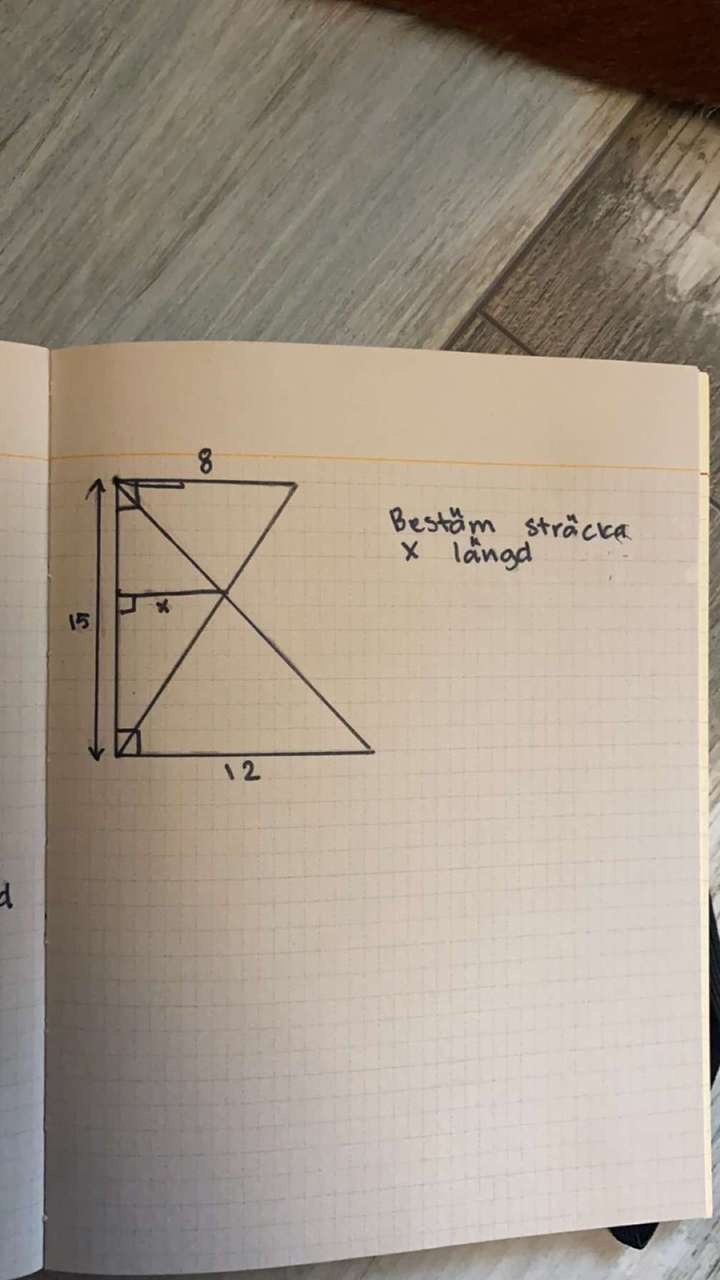 8
Bestäm sträcka
x längd
15
x
12
d